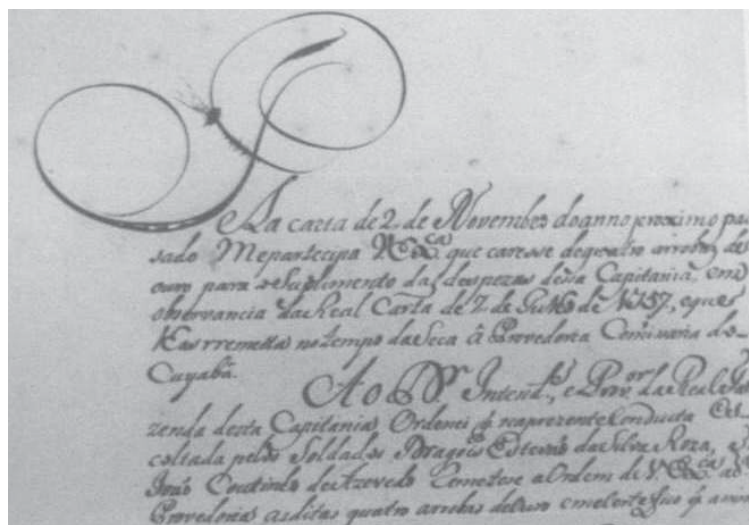 Na carta de 2 de Novembro do anno proximo pas
sado Me partecipa V. Exca. que caresse de quatro arrobas de
ouro para o Suplimento das despezas dessa Capitania, em
observancia da Real Carta de 7 de de 1757, e que
as rremetta no tempo da Seca á Provedoria Comisaria do
Cuyabá.
Ao Dr. Intende., e Provor. da Real Fa
zenda desta Capitania Ordenei q̃ na prezente Conducta Es
coltada pelos Soldados Dragões Estevão da Silva Roza, e
João Coutinho de Azevedo Remetese a Ordem de V. Exca. ad
Provedoria as ditas quatro arrobas de ouro q̃ a